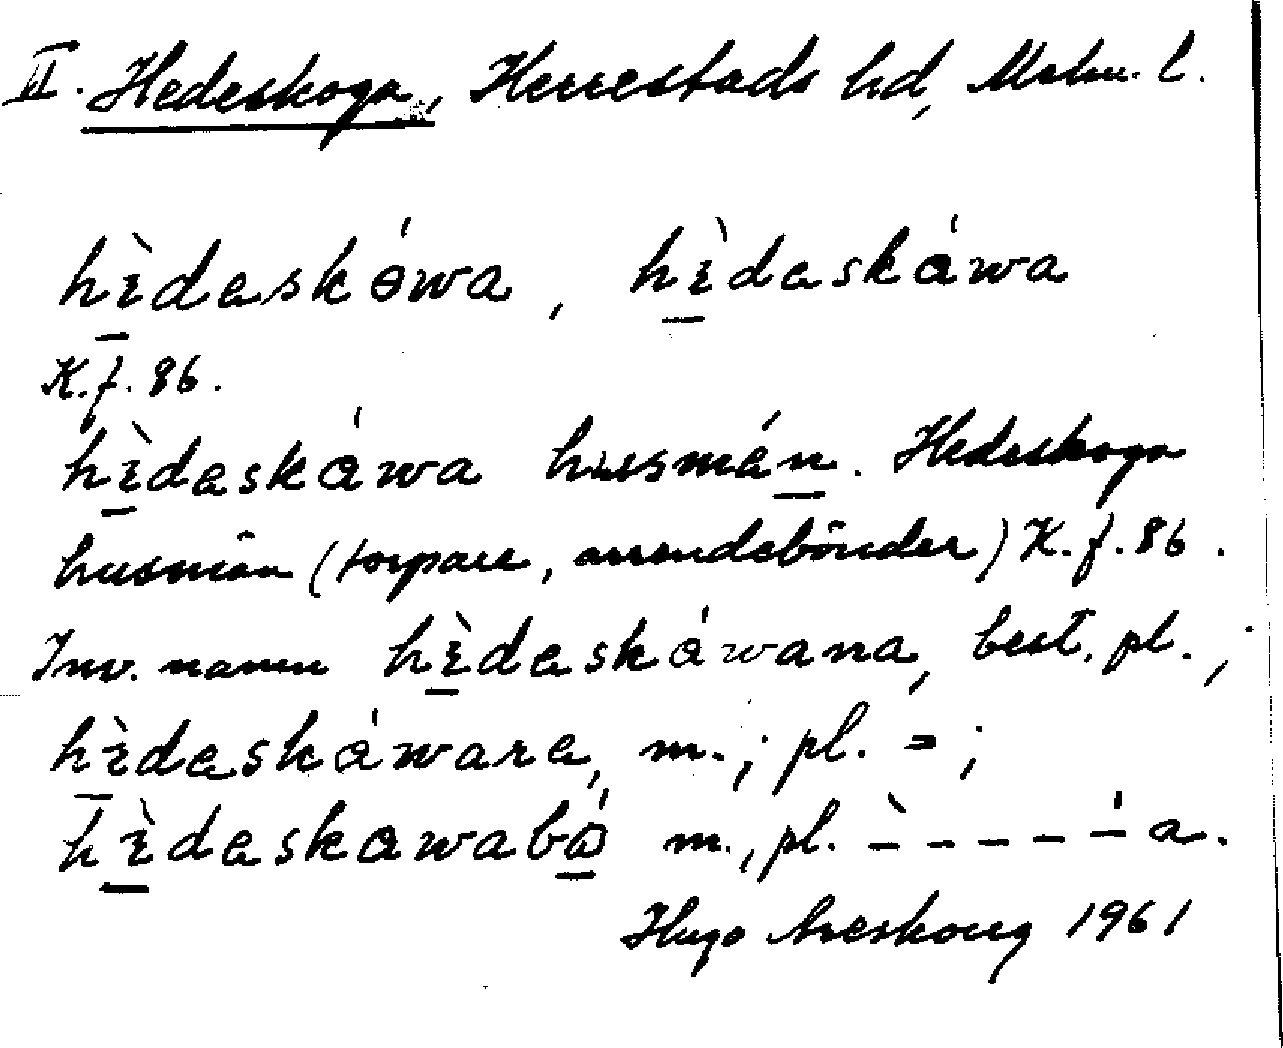 II. Hedeskoga, Herrestads hd, Malm. l.
hèdeskáwa, hèdeskáwa
K. f. 86.
hèdeskáwa husmán. Hedeskoga
husmän (torpare, arrendebönder) K. f. 86.
Inv. namn hèdeskáwana, best. pl.;
hèdeskáware, m.; pl. =;
hèdeskawabó m., pl. -̀ - - - -́ a.
Hugo Areskoug 1961